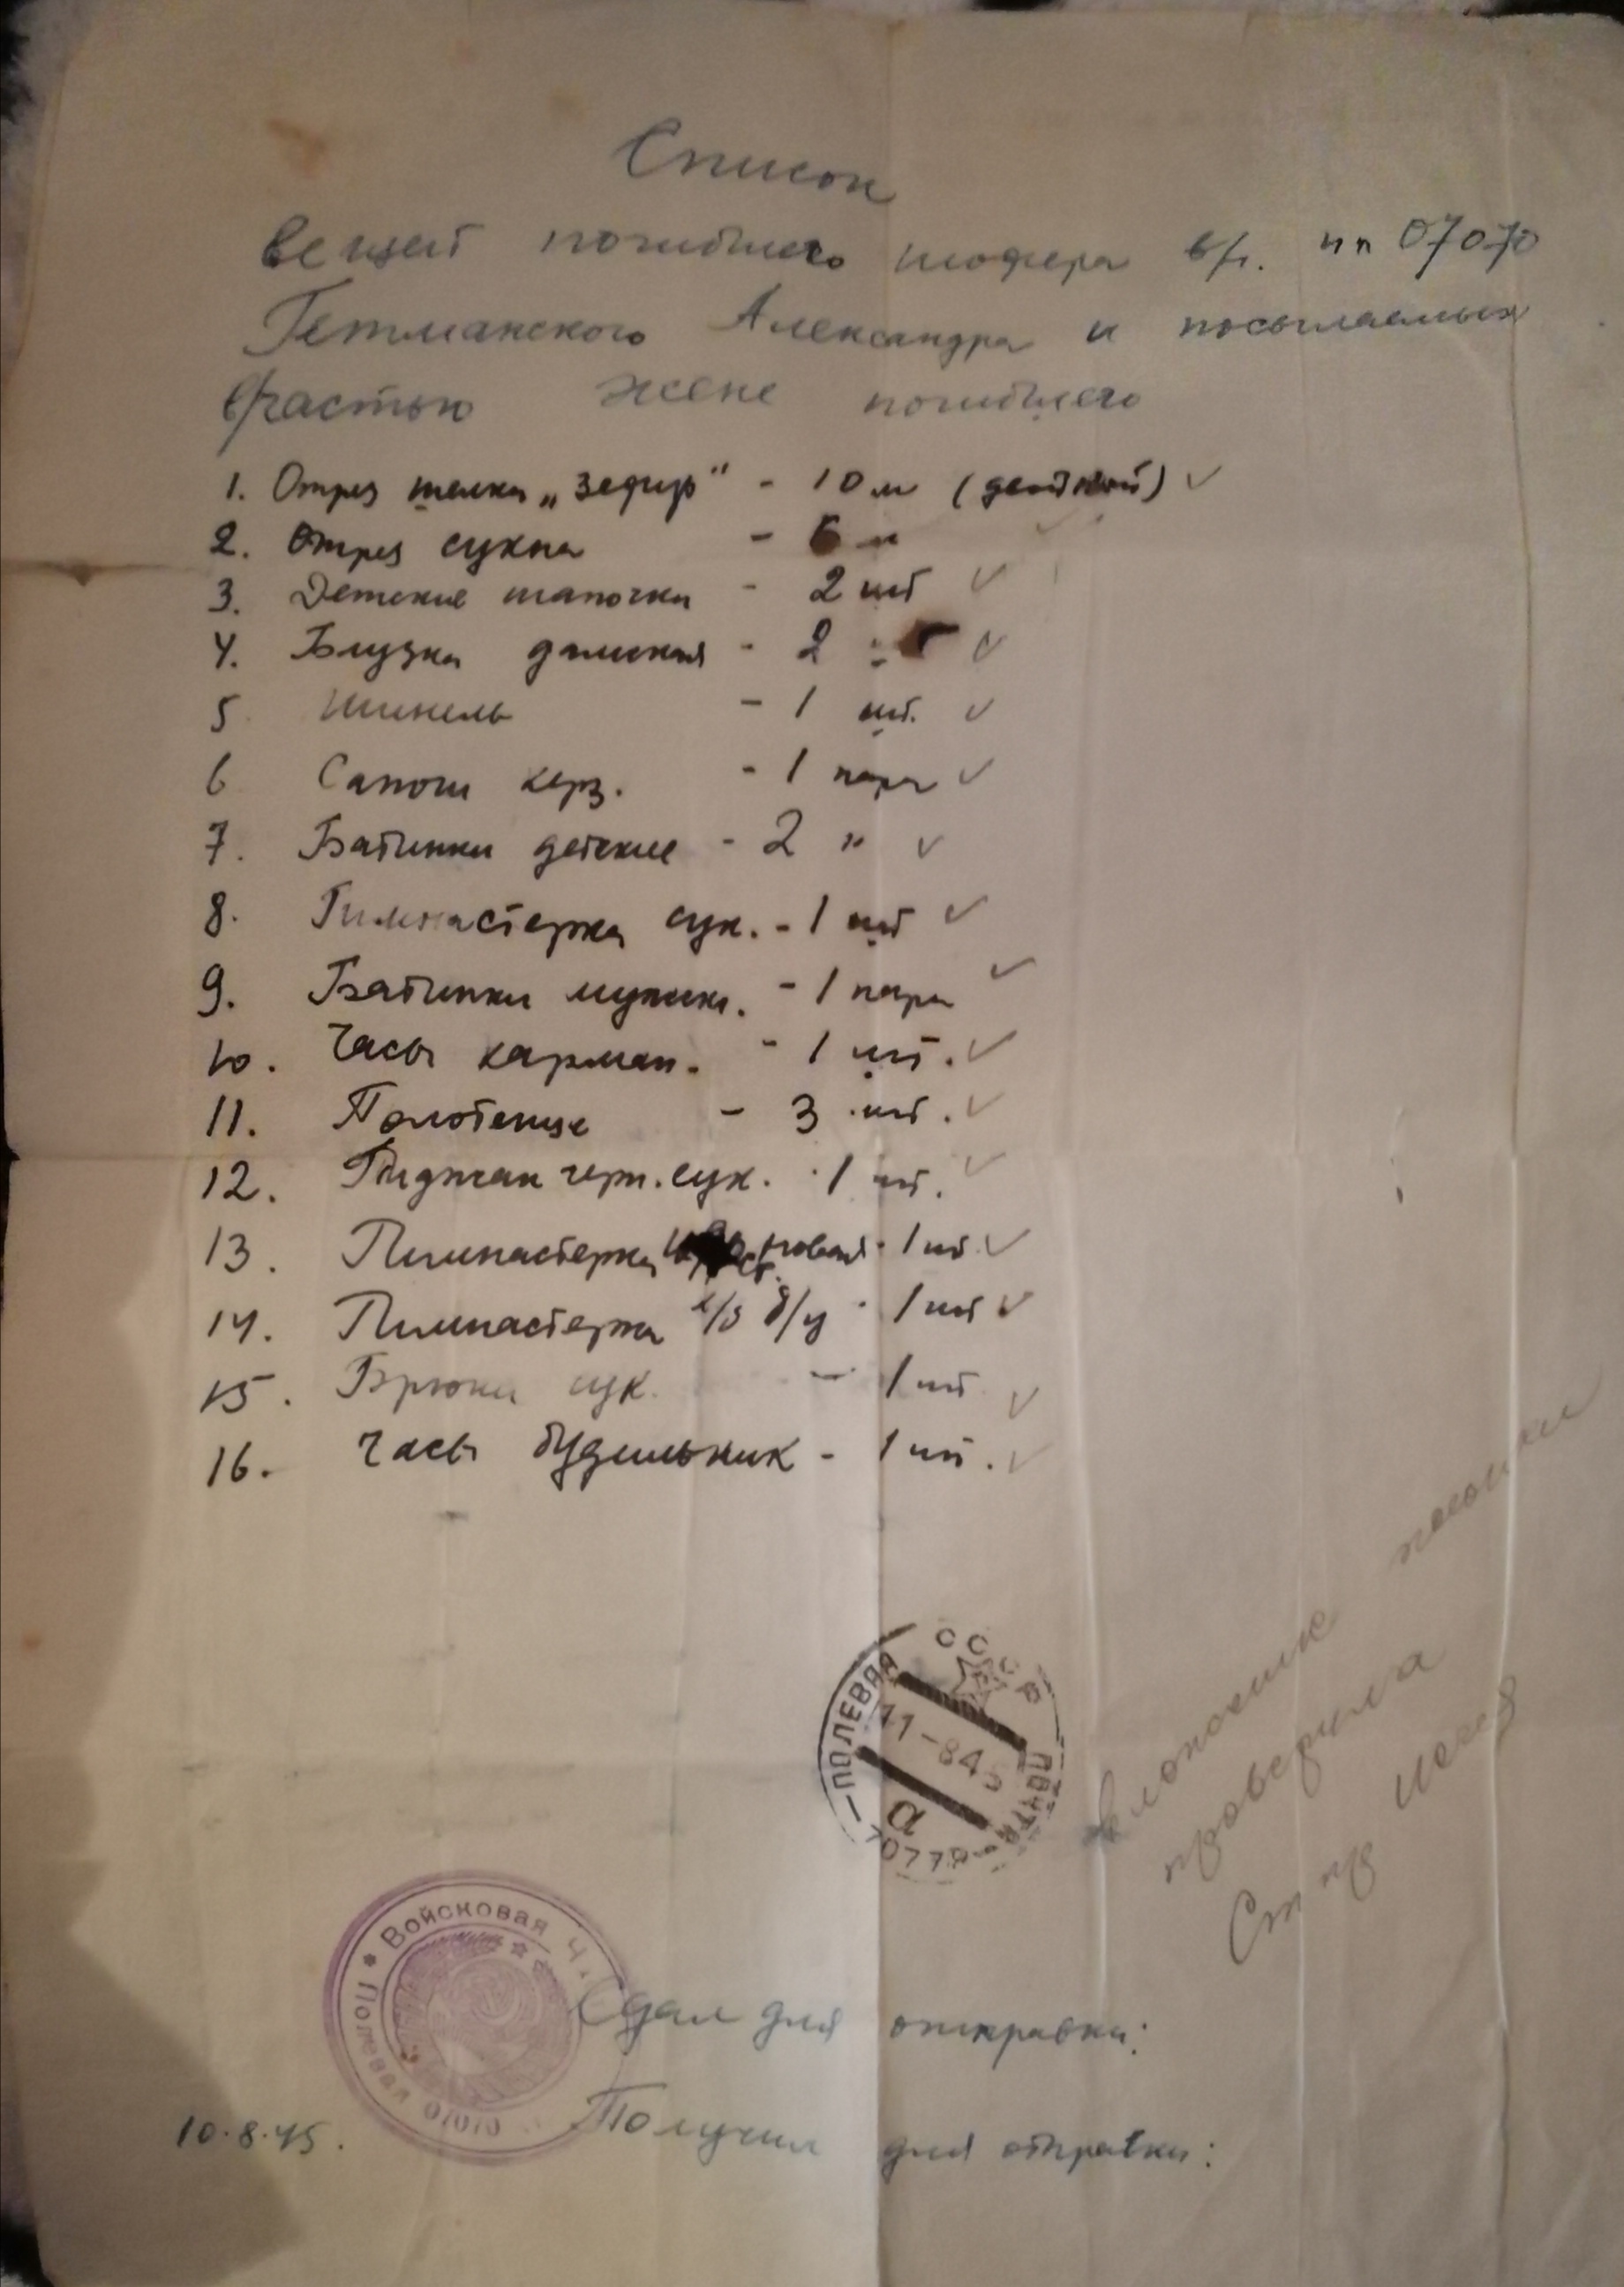 Список
вещей погибшего шофера в/ч. пп 07070
Гетманского Александра и посылаемых
в/частью жене погибшего
1. Отрез шелка „Зефир" - 10 м ✓
2. Отрез сукна - 6 м
3. Детские шапочки - 2 шт ✓
4. Блузка дамская - 2 ✓
5 Шинель - 1 шт. ✓
6 Сапоги керз. - 1 пара ✓
7. Батинки детские - 2 " ✓
8. Гимнастерка сук. - 1 шт ✓
9. Батинки мужск. - 1 пара ✓
10. Часы карман. - 1 шт. ✓
11. Полотенце - 3 шт. ✓
12. Пиджак черн. сук. - 1 шт. ✓
13. Гимнастерка новая - 1 шт. ✓
14. Гимнастерка х/б б/у - 1 шт ✓
15. Брюки сук. - 1 шт ✓
16. Часы будильник - 1 шт. ✓
СССР
ПОЛЕВАЯ ПОЧТА
11-845
а
вложение посылки
проверила
Ст
Войсковая Ч
Полевая 07070
Сдал для отправки:
10.8.45. Получил для отправки: